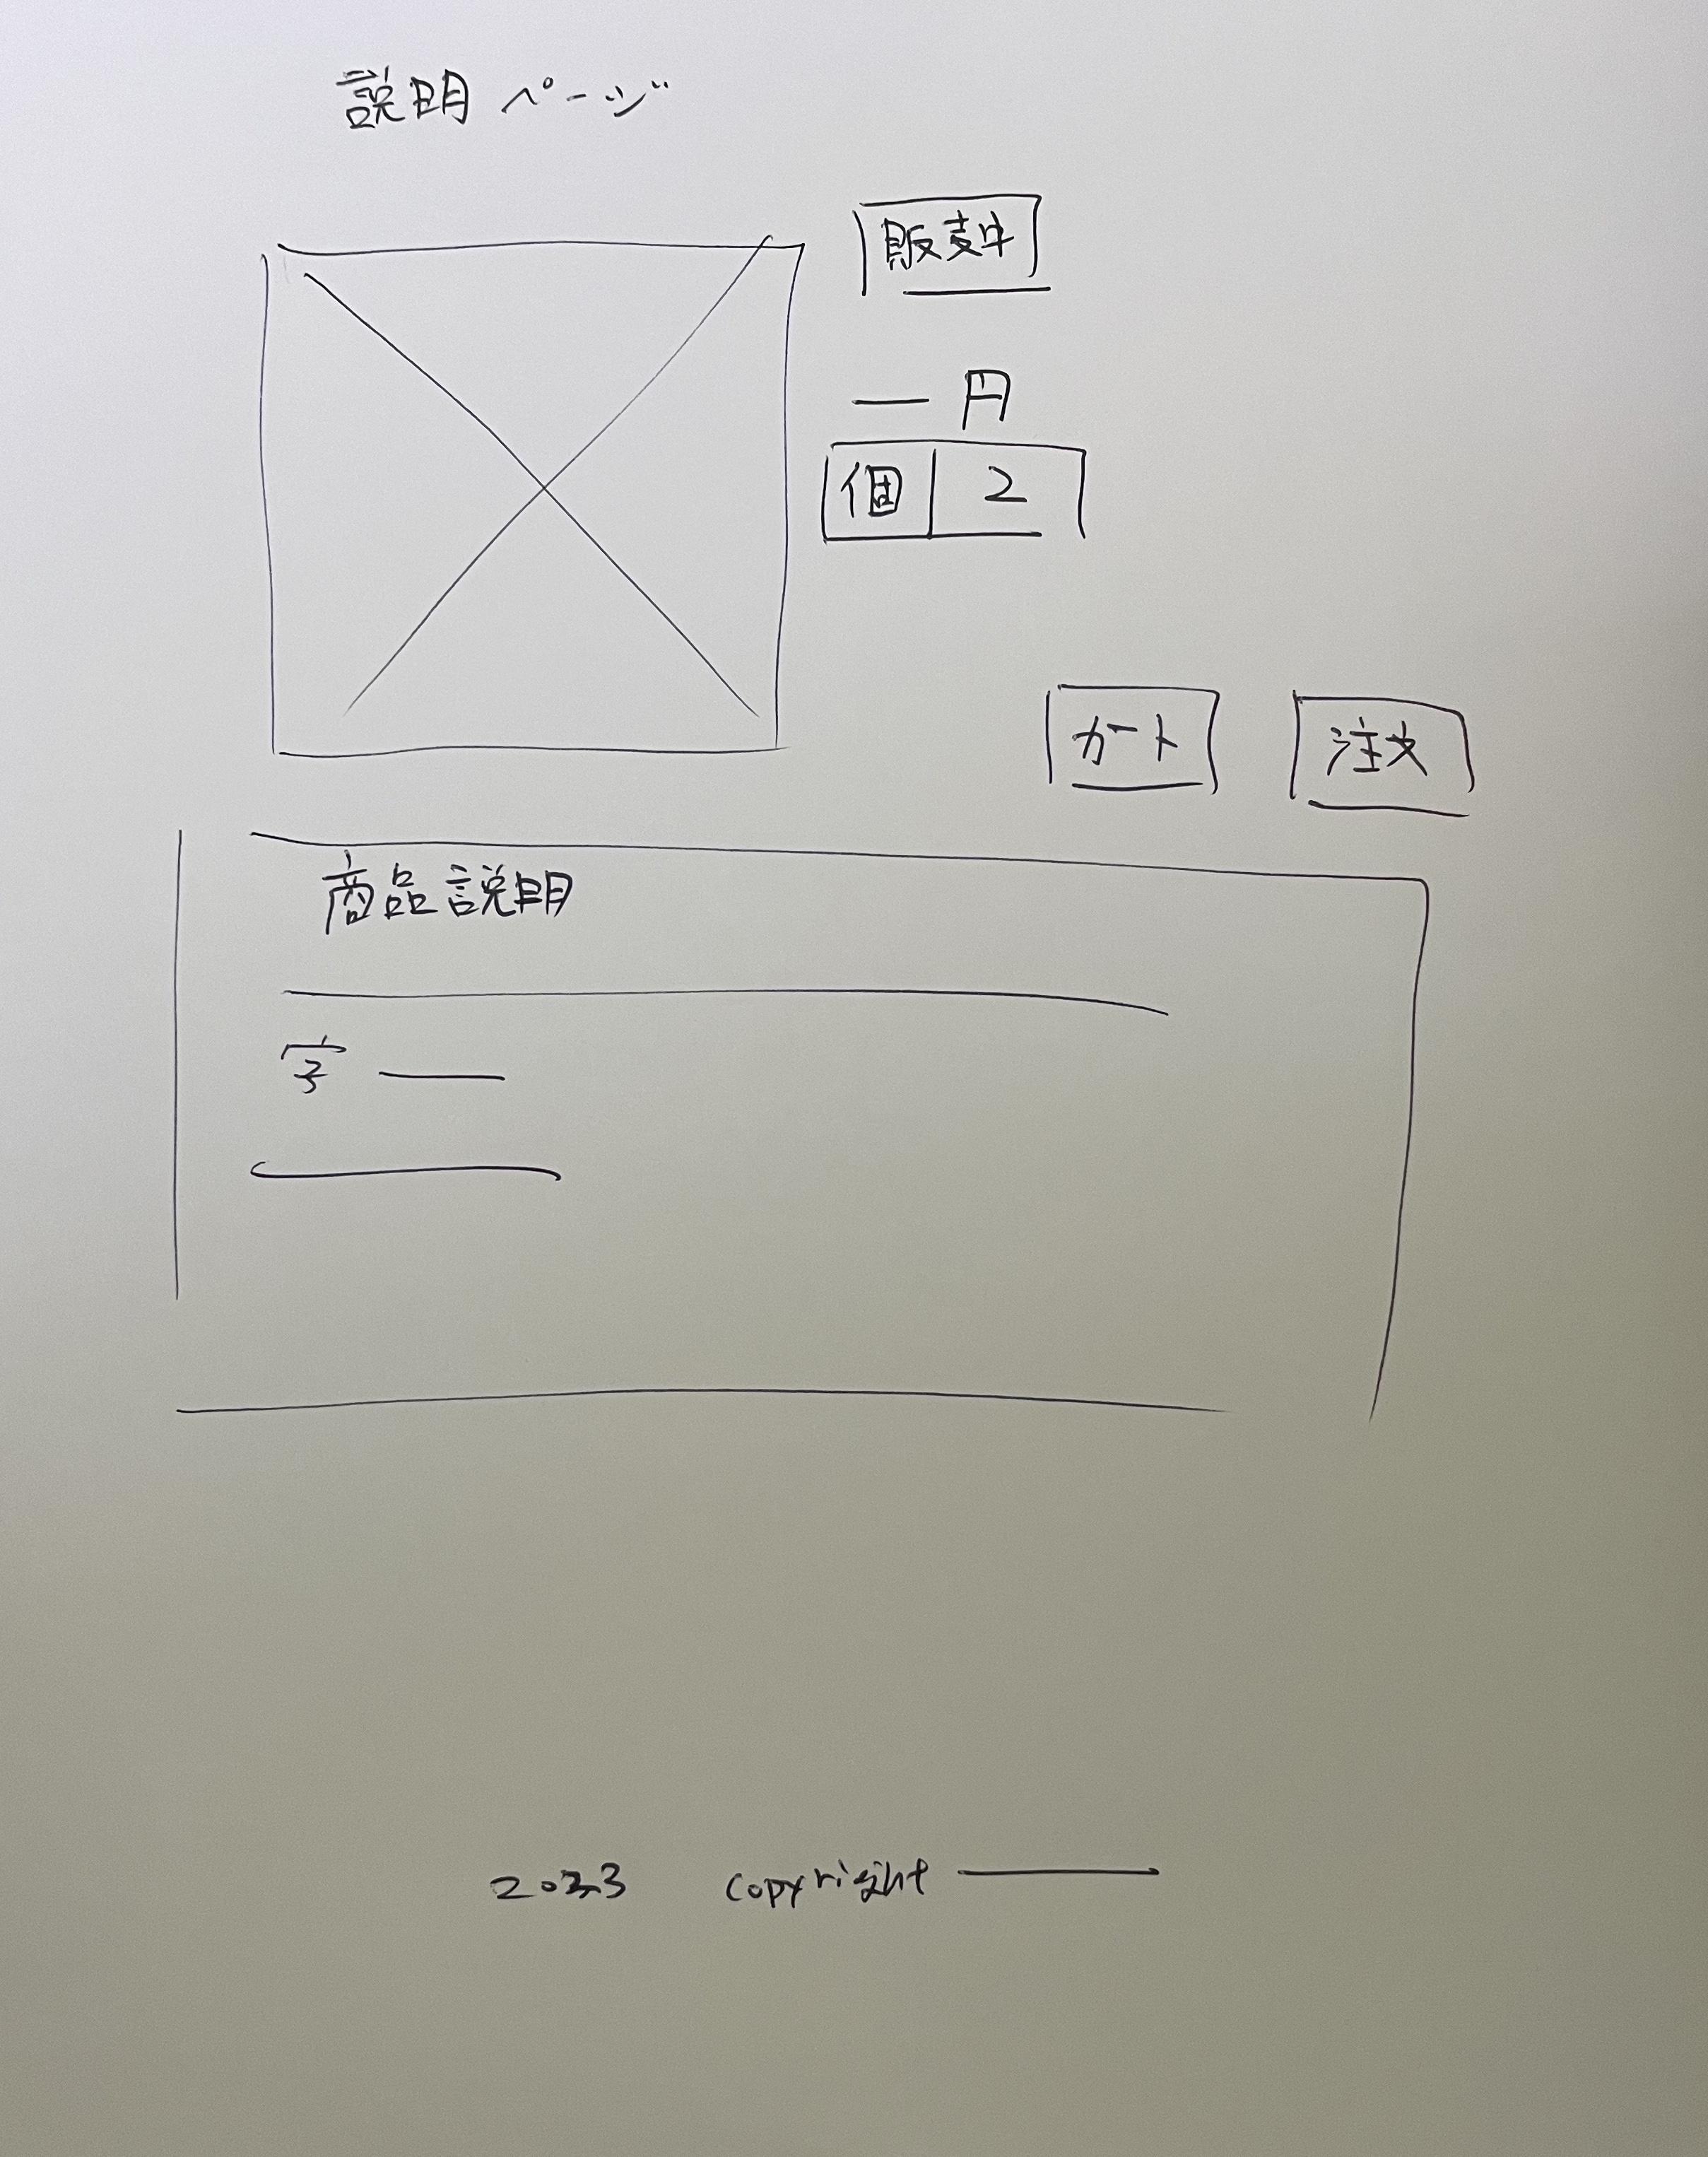 説明ページ
販売中
円
個 2
カート
注文
商品説明
字
2023 copyright